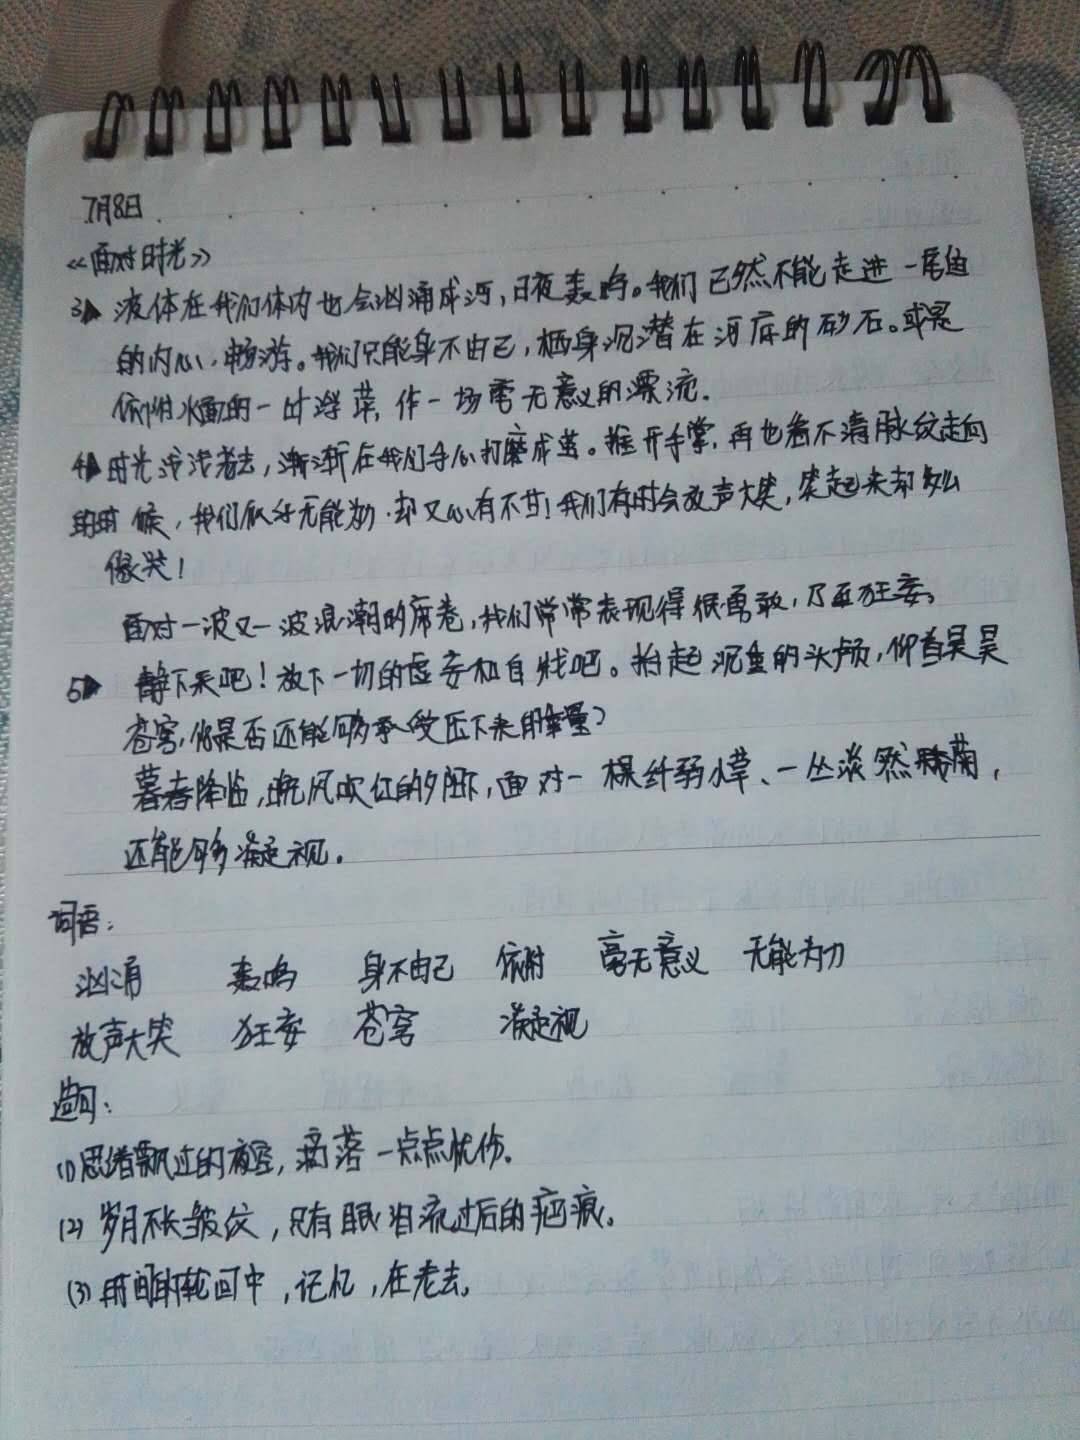 7月8日
《面对时光》
3、液体在我们体内也会汹涌成河,日夜轰鸣。我们已然不能走进一尾鱼
的内心,畅游。我们只能身不由己,栖身沉潜在河底的砂石。或是
依附水面的一叶浮萍,作一场毫无意义的漂流.
4、时光浅浅老去,渐渐在我们手心打磨成茧。摊开手掌,再也看不清脉纹走向
的时候,我们似乎无能为力,却又心有不甘!我们有时会放声大笑,笑起来却如此
像哭!
面对一波又一波浪潮的席卷,我们常常表现得很勇敢,乃至狂妄。
5、静下来吧!放下一切的虚妄和自戕吧。抬起沉重的头颅,仰首昊昊
苍穹,你是否还能够承受压下来的重量?
暮春降临,晚风吹红的夕阳下,面对一棵纤弱小草、一丛淡然雏菊,
还能够凝视。
词语:
汹涌 轰鸣 身不由己 依附 毫无意义 无能为力
放声大笑 狂妄 苍穹 凝视
造句:
(1)思绪飘过的夜空,滴落一点点忧伤。
(2)岁月不长皱纹,只有眼泪流过后的疤痕。
(3)时间的轮回中,记忆,在老去。